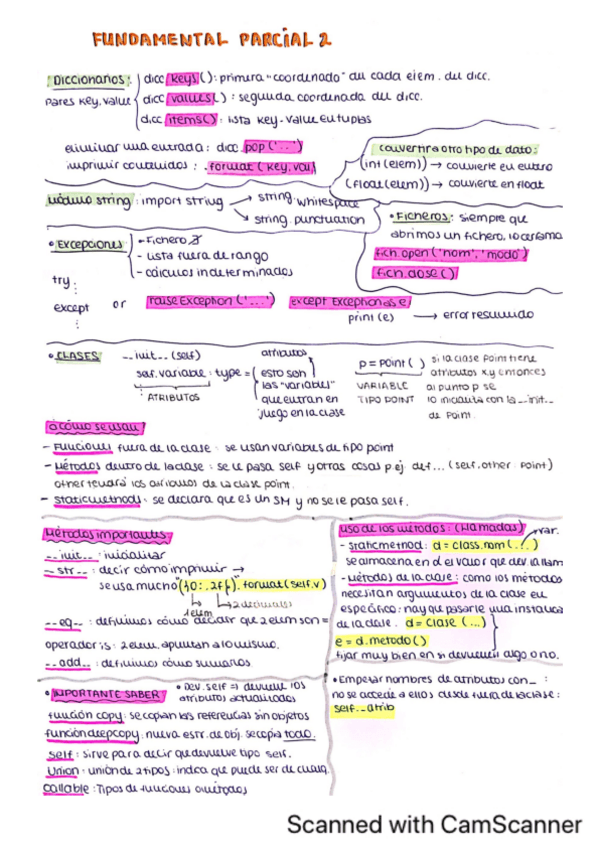 FUNDAMENTAL PARCIAL 2
Diccionarios:
pares key, value
dicc keys(): primera "coordenada" du cada elem. du dicc.
dicc values(): segunda coordenada du dicc.
dicc items(): lista key-value en tuplas
eliminar una entrada: dicc pop('..')
imprimir contenidos: .format(key, val)
convertir a otro tipo de dato:
(int(elem)) → convierte en entero
(float(elem)) → convierte en float
módulo string: import string → string.whitespace
→ string.punctuation
• Ficheros: siempre que
abrimos un fichero, lo cerramos
fich.open('nom', 'modo')
fich.close()
• Excepciones
- Fichero
- Lista fuera de rango
- cálculos indeterminados
try:
except or raise Exception('...') except Exception as e
print(e) → error resumido
• CLASES
__init__(self)
self.variable: type =
ATRIBUTOS
atributos
esto son
las "variables"
que entran en
juego en la clase
p = Point()
VARIABLE
TIPO POINT
si la clase Point tiene
atributos x,y entonces
al punto p se
lo inicializa con la __init__
de Point.
¿cómo se usan?
- Funciones fuera de la clase: se usan variables de tipo point
- Métodos dentro de la clase: se le pasa self y otras cosas p.ej. def... (self, other: Point)
other tendrá los atributos de la clase point.
- staticmethods: se declara que es un SM y no se le pasa self.
Métodos importantes
__init__: inicializar
__str__: decir cómo imprimir →
se usa mucho "{0:.2f}".format(self.v)
1 elem 2 decimales
__eq__: definimos cómo decidir que 2 elem son =
operador is: 2 elem. apuntan a lo mismo.
__add__: definimos cómo sumarlos
Uso de los métodos: (llamadas)
var.
- staticmethod: d = class.nom(...)
se almacena en d el valor que dev. la llam
- Métodos de la clase: como los métodos
necesitan argumentos de la clase en
específico: hay que pasarle una instancia
de la clase. d = clase(...)
e = d.metodo()
fijar muy bien en si devuelve algo o no.
• IMPORTANTE SABER
• Dev. self ⇒ devuelve los
atributos actualizados
función copy: se copian las referencias sin objetos
función deepcopy: nueva estr. de obj. se copia todo.
self: sirve para decir que devuelve tipo self.
Union: unión de 2 tipos: indica que puede ser de cualq.
Callable: Tipos de funciones
• Empezar nombres de atributos con _ :
no se accede a ellos desde fuera de la clase:
self._atrib
Scanned with CamScanner